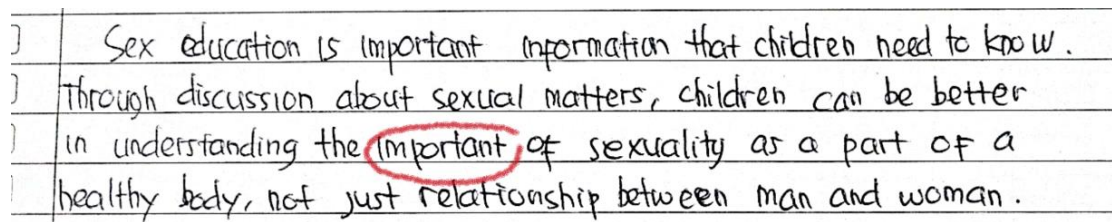 Sex education is important information that children need to know.
Through discussion about sexual matters, children can be better
in understanding the important of sexuality as a part of a
healthy body, not just relationship between man and woman.